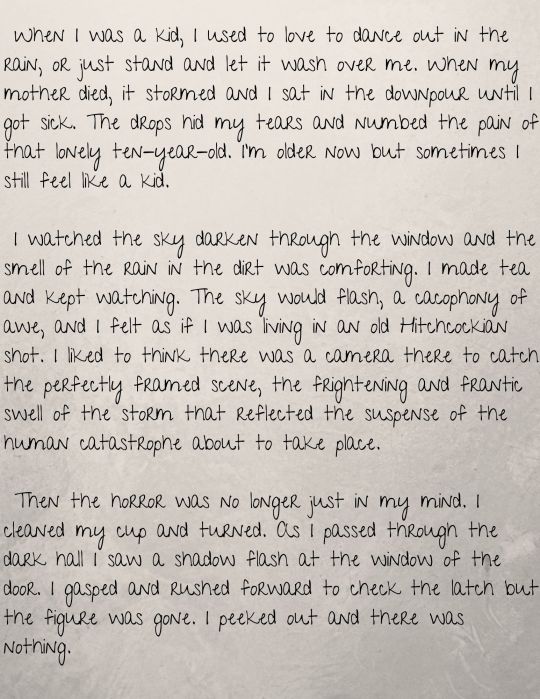 When I was a kid, I used to love to dance out in the
rain, or just stand and let it wash over me. When my
mother died, it stormed and I sat in the downpour until I
got sick. The drops hid my tears and numbed the pain of
that lonely ten-year-old. I'm older now but sometimes I
still feel like a kid.
I watched the sky darken through the window and the
smell of the rain in the dirt was comforting. I made tea
and kept watching. The sky would flash, a cacophony of
awe, and I felt as if I was living in an old Hitchcockian
shot. I liked to think there was a camera there to catch
the perfectly framed scene, the frightening and frantic
swell of the storm that reflected the suspense of the
human catastrophe about to take place.
Then the horror was no longer just in my mind. I
cleaned my cup and turned. As I passed through the
dark hall I saw a shadow flash at the window of the
door. I gasped and rushed forward to check the latch but
the figure was gone. I peeked out and there was
nothing.